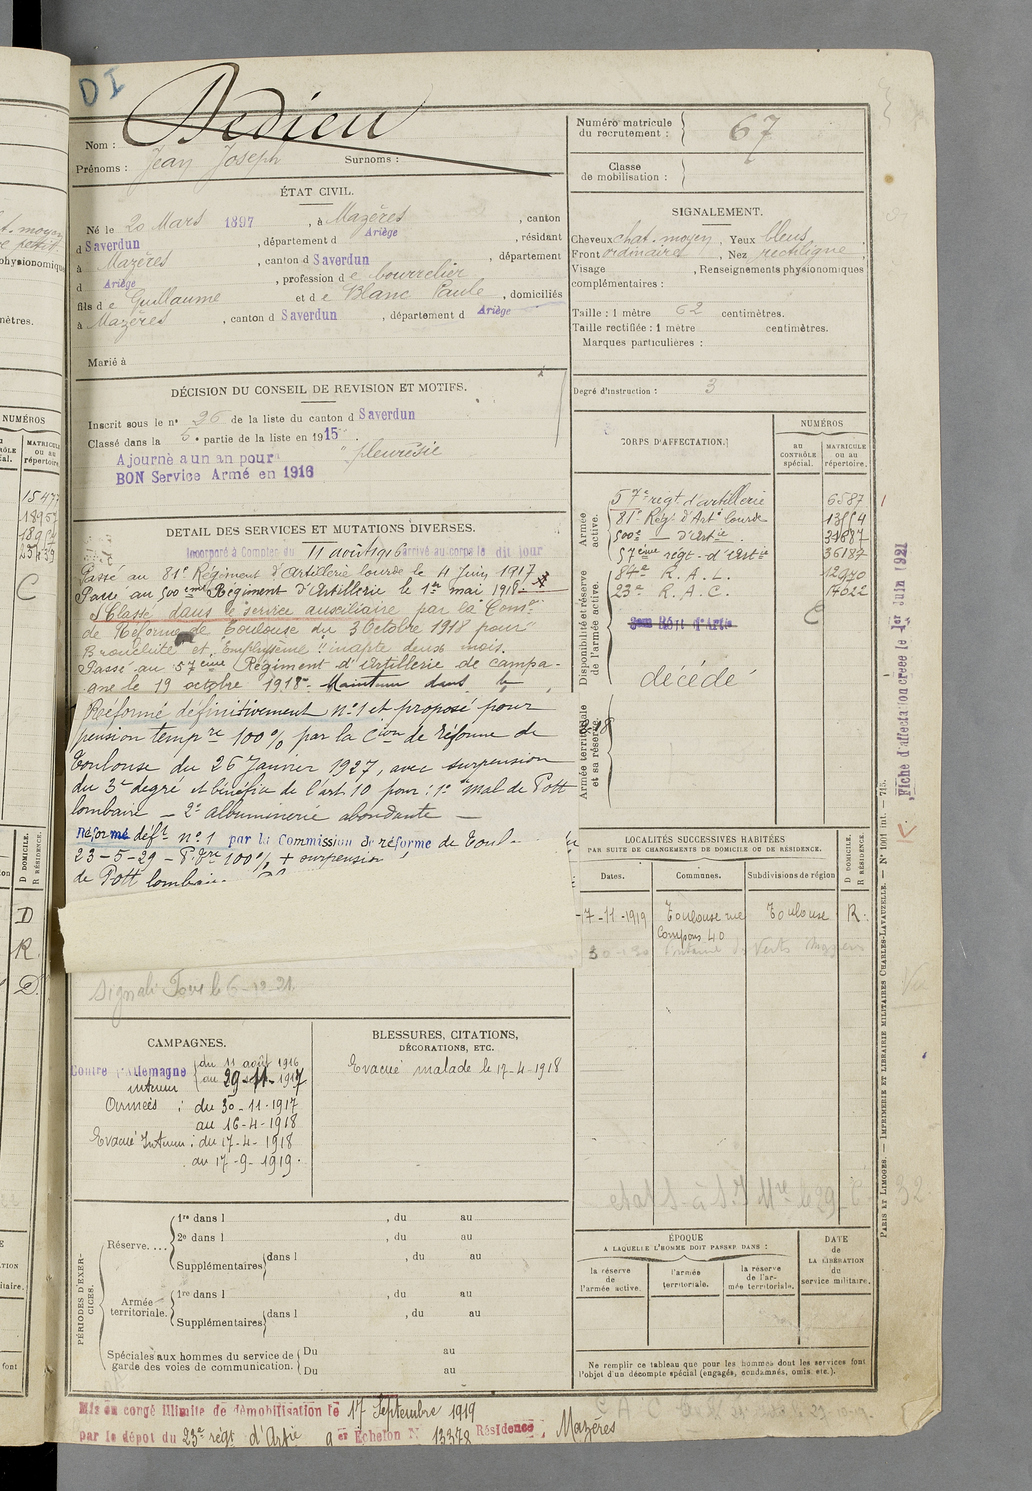 DI
Nom : Dedieu
Prénoms : Jean Joseph Surnoms :
Numéro matricule du recrutement : 67
Classe de mobilisation :
ÉTAT CIVIL.
Né le 20 Mars 1897, à Mazères, canton
d Saverdun, département d Ariège, résidant
à Mazères, canton d Saverdun, département
d Ariège, profession de bourrelier
fils de Guillaume et de Blanc Paule, domiciliés
à Mazères, canton d Saverdun, département d Ariège
Marié à
SIGNALEMENT.
Cheveux chat. moyen, Yeux bleus,
Front ordinaire, Nez rectiligne,
Visage , Renseignements physionomiques
complémentaires :
Taille : 1 mètre 62 centimètres.
Taille rectifiée : 1 mètre centimètres.
Marques particulières :
Degré d'instruction : 3
DÉCISION DU CONSEIL DE REVISION ET MOTIFS.
Inscrit sous le n° 26 de la liste du canton d Saverdun
Classé dans la 5e partie de la liste en 1915.
Ajourné a un an pour "pleurésie
BON Service Armé en 1916
DETAIL DES SERVICES ET MUTATIONS DIVERSES.
Incorporé à Compter du 11 août 1916 arrivé au corps le dit jour
Passé au 81e Régiment d'Artillerie lourde le 4 Juin 1917
Passé au 500ème Régiment d'Artillerie le 1er mai 1918
Classé dans le service auxiliaire par la Comon
de Réforme de Toulouse du 3 Octobre 1918 pour
Bronchite et Emphysème "inapte deux mois.
Passé au 57ème Régiment d'Artillerie de campa-
gne le 19 octobre 1918. Maintenu dans le
Réformé définitivement n°1 et proposé pour
pension tempre 100% par la Cion de réforme de
Toulouse du 26 Janvier 1927, avec surpension
du 3e degré et bénéfice de l'art 10 pour : 1° mal de Pott
lombaire — 2° albuminerie abondante —
Réformé déft n°1 par la Commission de réforme de Toul
23-5-29 - P. Pre 100% + surpension
de Pott lombaire.
Signalé Fous le 6-12-21
CORPS D'AFFECTATION.
NUMÉROS
AU CONTRÔLE spécial.
MATRICULE ou au répertoire.
Armée active.
57e regt d'artillerie 6587
81e Reg. d'Arte lourde 13554
500e — d'Artie 31687
57ème régt. d'Artie 36187
Disponibilité et réserve de l'armée active.
84e R. A. L. 12970
23e R. A. C. 17022
C
décédé
Armée territoriale et sa réserve.
Fiche d'affectation créée le 1er Juin 1921
LOCALITÉS SUCCESSIVES HABITÉES
PAR SUITE DE CHANGEMENTS DE DOMICILE OU DE RÉSIDENCE.
Dates. Communes. Subdivisions de région D DOMICILE. R RÉSIDENCE.
7-11-1919 Toulouse rue Toulouse R.
Compans 40
CAMPAGNES.
Contre l'Allemagne du 11 août 1916
intérieur au 29-11-1917
Armées : du 30-11-1917
au 16-4-1918
Evacué Intérieur : du 17-4-1918
au 17-9-1919.
BLESSURES, CITATIONS, DÉCORATIONS, ETC.
Evacué malade le 17-4-1918
PÉRIODES D'EXERCICES.
Réserve.... 1re dans l , du au
2e dans l , du au
Supplémentaires dans l , du au
Armée territoriale. 1re dans l , du au
Supplémentaires dans l , du au
Spéciales aux hommes du service de garde des voies de communication. Du au
Du au
ÉPOQUE
A LAQUELLE L'HOMME DOIT PASSER DANS :
la réserve de l'armée active.
l'armée territoriale.
la réserve de l'armée territoriale.
DATE de LA LIBÉRATION du service militaire.
Ne remplir ce tableau que pour les hommes dont les services font
l'objet d'un décompte spécial (engagés, condamnés, omis, etc.).
PARIS ET LIMOGES. — IMPRIMERIE ET LIBRAIRIE MILITAIRES CHARLES-LAVAUZELLE. — N° 1001 int. — 715.
Mis en congé illimité de démobilisation le 17 Septembre 1919
par le dépôt du 23e régt d'Artie 9er Echelon N° 13378 Résidence, Mazères